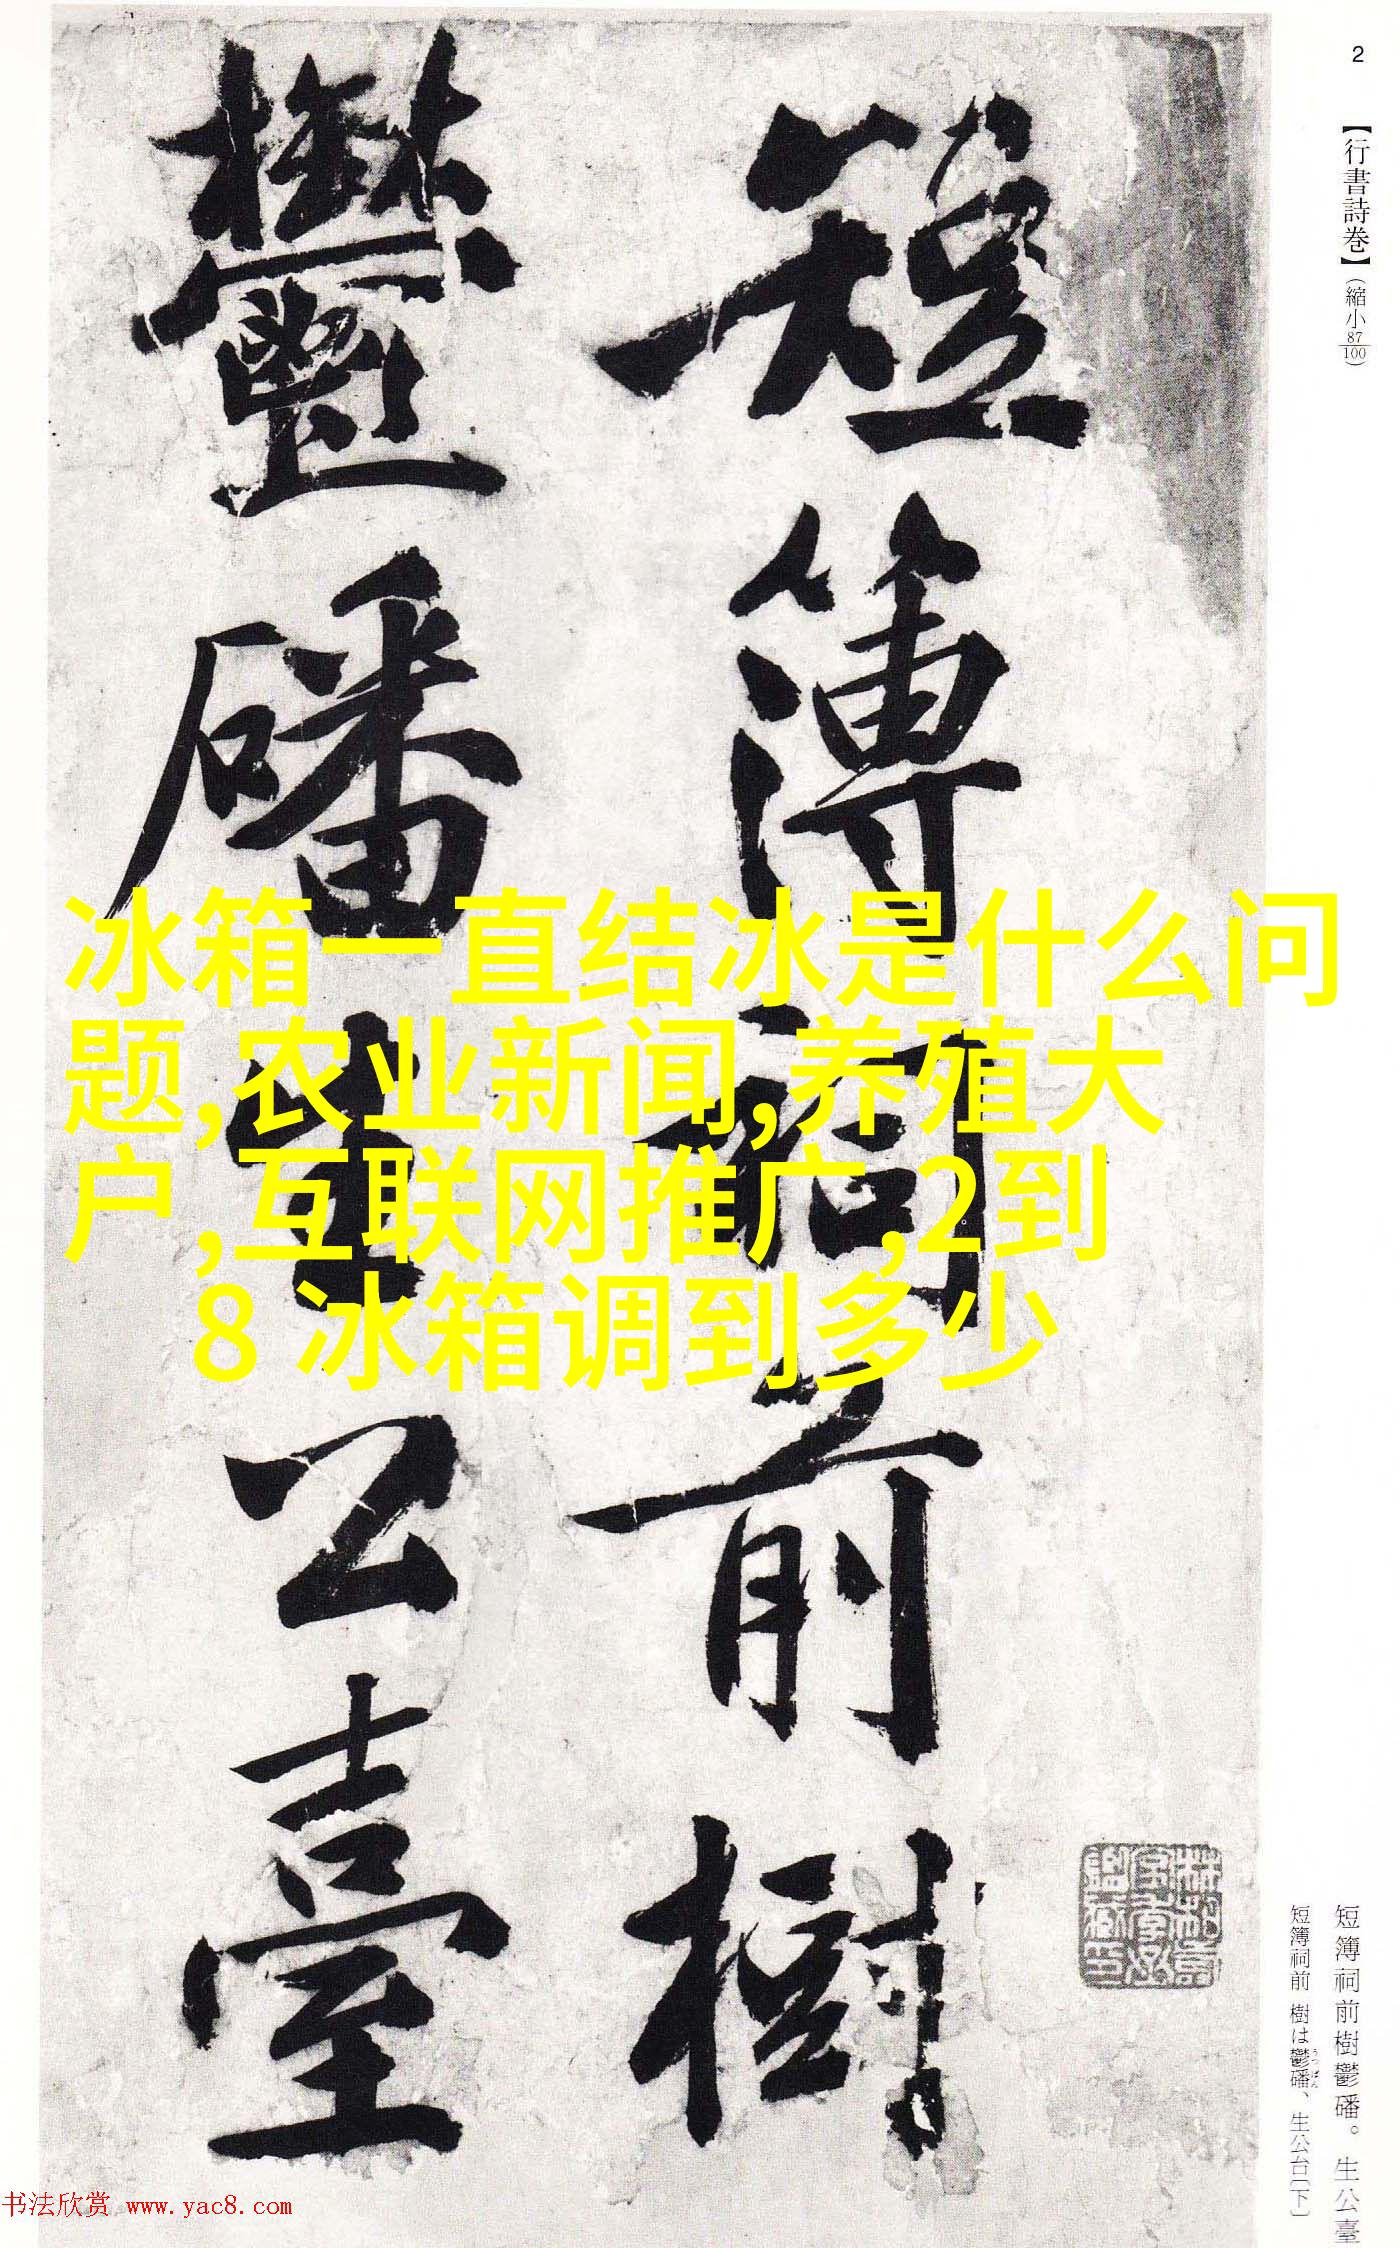 2
【行書詩巻】(縮小87/100)
短簿祠前樹
鬱磻生公臺
冰箱一直结冰是什么问
题,农业新闻,养殖大
户,互联网推广,2到
8 冰箱调到多少
短簿祠前樹鬱磻。生公臺
短簿祠前 樹は鬱磻、生公台〔下〕
うっぱん
书法欣赏 www.yac8.com